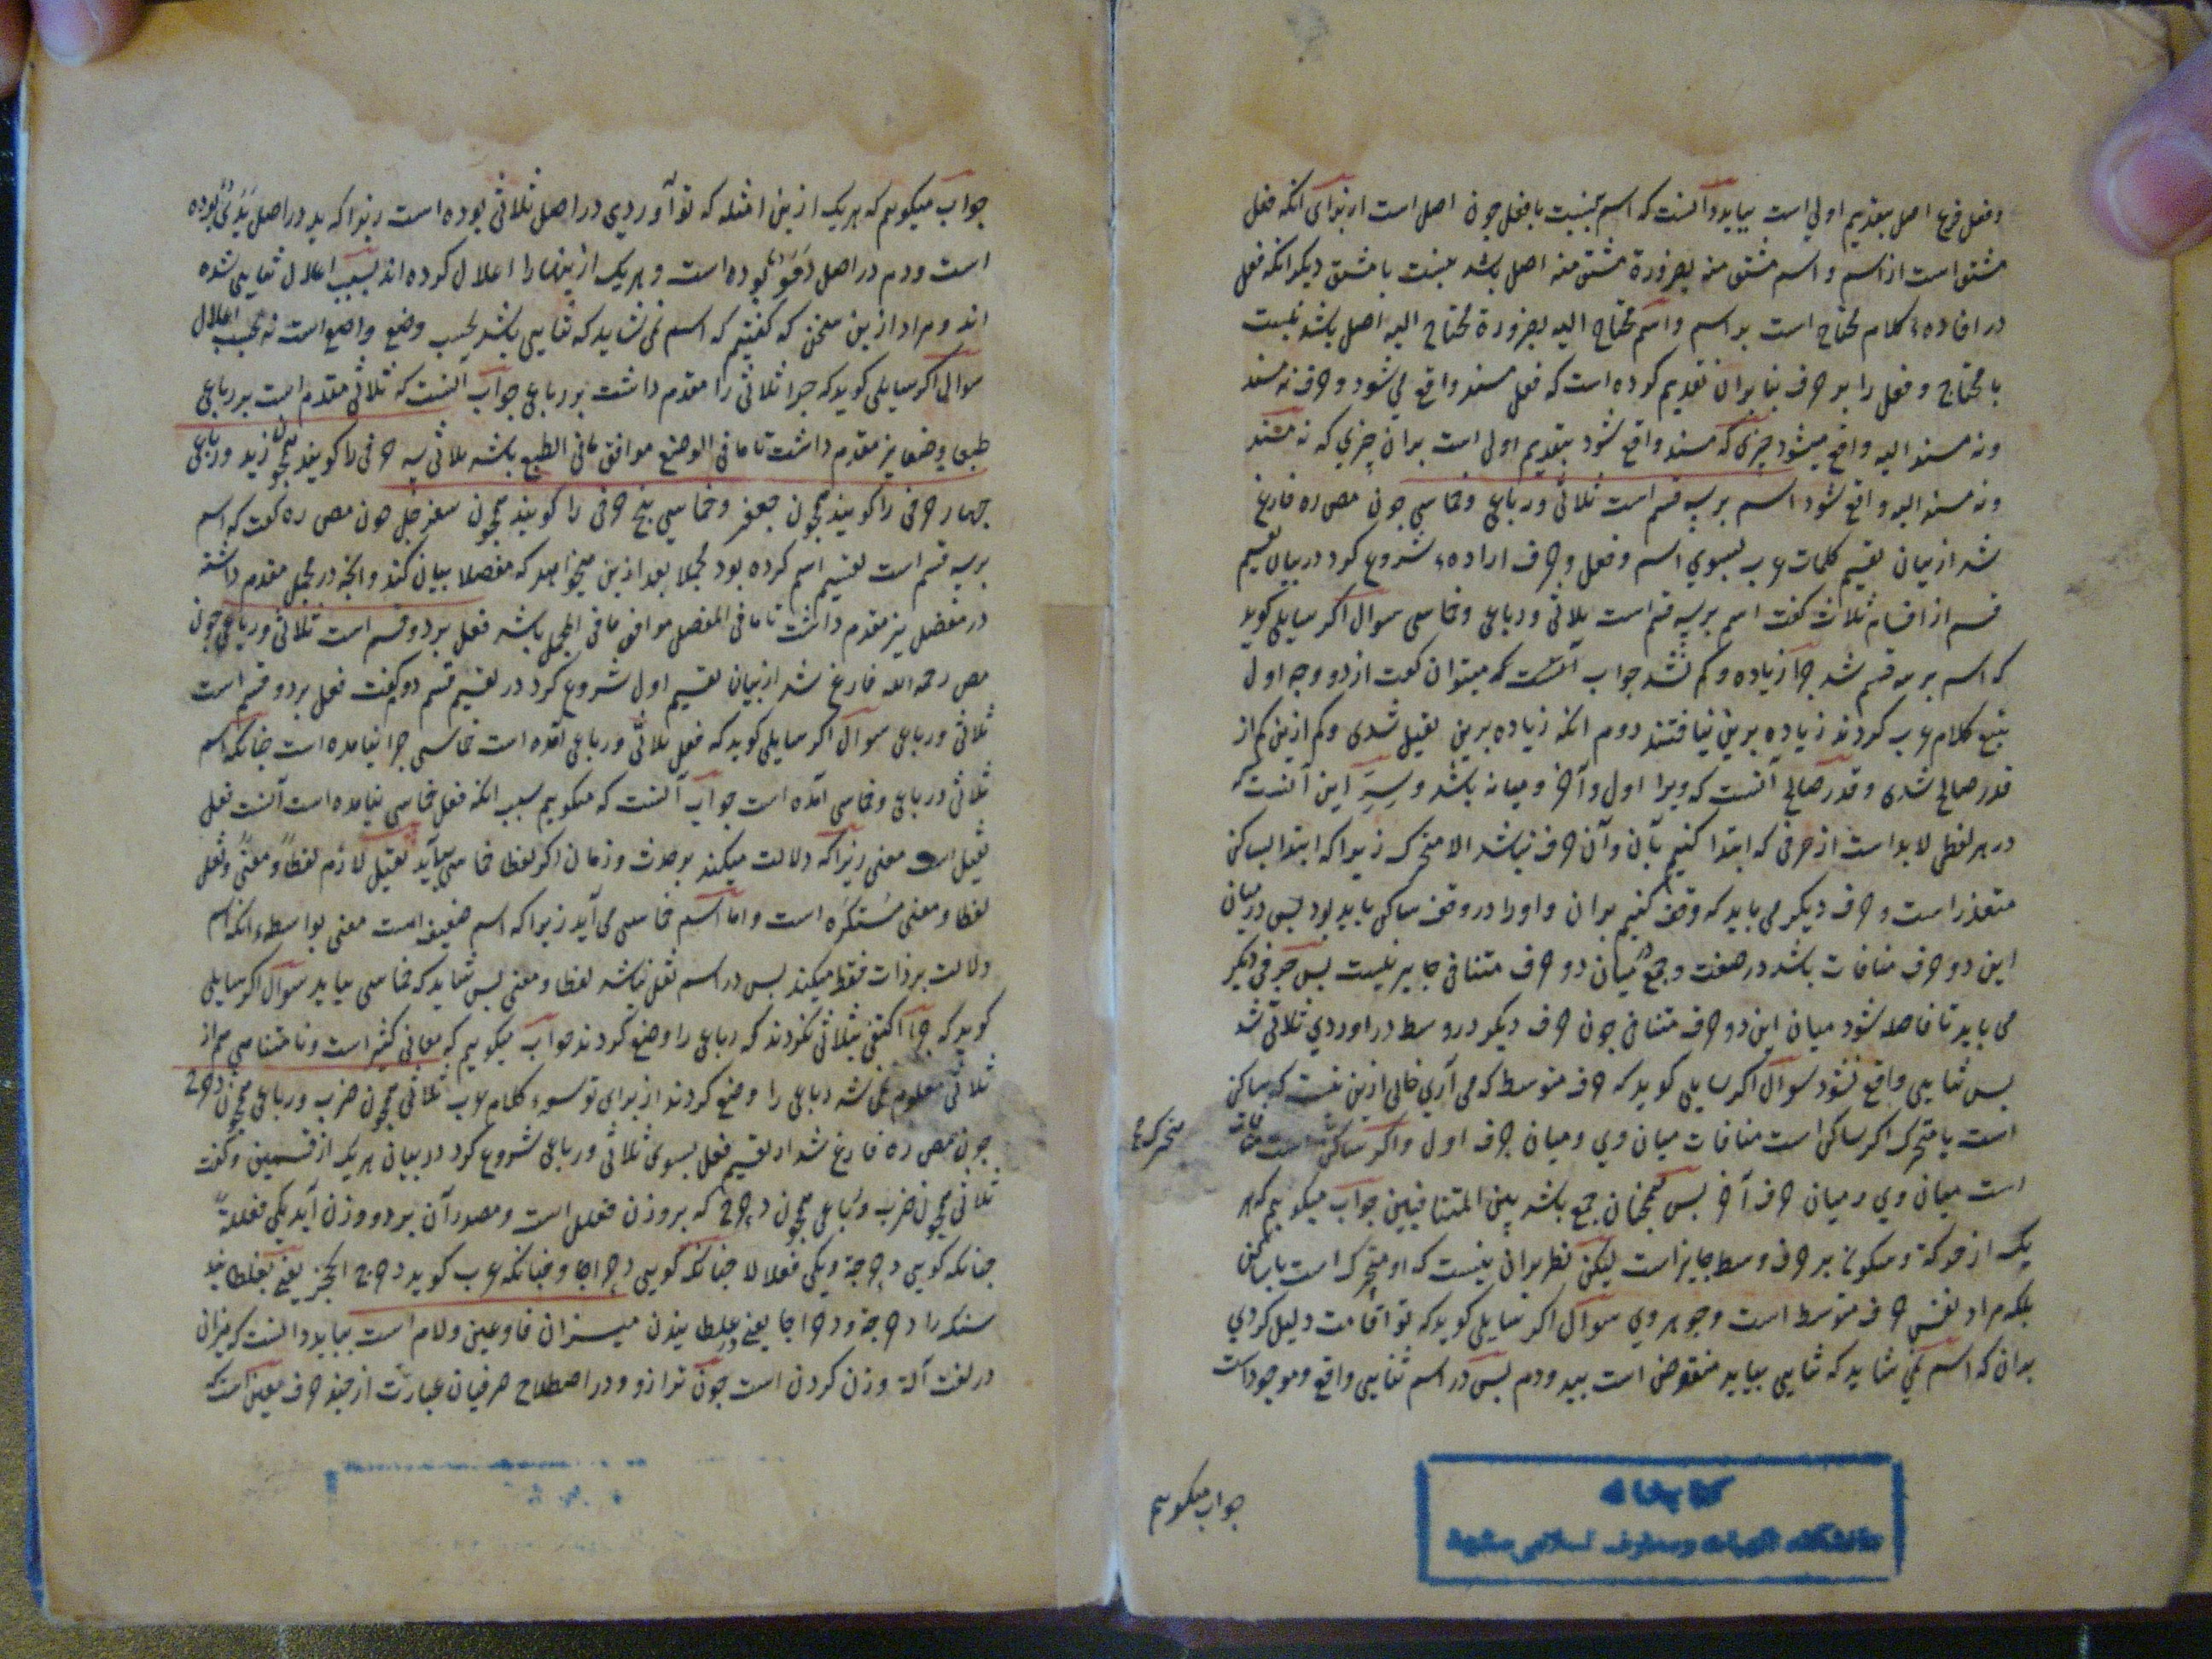 وفعل فرع اصل بتقدیم اولی است بیاید دانست که اسم بنسبت با فعل چون اصل است از برای آنکه فعل
مشتق است از اسم و اسم مشتق منه بضرورة مشتق منه اصل باشد بنسبت با مشتق دیگر آنکه فعل
در افاده کلام محتاج است بر اسم و اسم محتاج الیه بضرورة محتاج الیه اصل باشد بنسبت
با محتاج و فعل را بر حرف بنابران تقدیم کرده است که فعل مسند واقع می شود و حرف نه مسند
ونه مسند الیه واقع میشود چیزی که مسند واقع شود بتقدیم اولی است بران چیزی که نه مسند
ونه مسند الیه واقع شود اسم بر سه قسم است ثلاثی و رباعی و خماسی چون مص ره فارغ
شد از بیان تقسیم کلمات عرب بسوی اسم و فعل و حرف اراده شروع کرد در بیان تقسیم
قسم از اقسام ثلاث گفت اسم بر سه قسم است ثلاثی و رباعی و خماسی سوال اکر سایلی کوید
که اسم بر سه قسم شد چرا زیاده و کم نشد جواب آنست که میتوان گفت از دو وجه اول
تتبع کلام عرب کردند زیاده برین نیافتند دوم آنکه زیاده برین ثقیل شدی و کم ازین کم از
قدر صالح شدی و قدر صالح آنست که ویرا اول و آخر و میانه باشد و سرّ این آنست که
در هر لفظی لابد است از حرفی که ابتدا کنیم بآن و آن حرف نباشد الا متحرک زیرا که ابتدا بساکن
متعذر است و حرف دیگر می باید که وقف کنیم بران و اورا در وقف ساکن باید بود پس در میان
این دو حرف منافات باشد در صفت و جمع میان دو حرف متنافی جایز نیست پس حرفی دیگر
می باید تا فاصله شود میان این دو حرف متنافی چون حرف دیگر در وسط در اوردی ثلاثی شد
پس ثنایی واقع نشود سوال اکر سایلی کوید که حرف متوسط که می آری خالی ازین نیست که ساکن
است یا متحرک اکر ساکن است منافات میان وی و میان حرف اول و اکر ساکن است منافات
متحرک
است میان وی و میان حرف آخر پس همچنان جمع باشد بین المتنافیین جواب میکویم که هر
یک از حرکة و سکون بر حرف وسط جایز است لیکن نظر بران نیست که او متحرک است یا ساکن
بلکه مراد نفس حرف متوسط است و جوهر وی سوال اکر سایلی کوید که تو اقامت دلیل کردی
بدان که اسم نمی شاید که ثنایی بیاید منقوض است بید و دم پس در اسم ثنایی واقع و موجود است
جواب میکویم
کتابخانه
دانشکده الهیات و معارف اسلامی مشهد
جواب میکویم که هر یک ازین امثله که تو آوردی در اصل ثلاثی بوده است زیرا که ید در اصل یَدَیٌ بوده
است و دم در اصل دَمَوٌ بوده است و هر یک ازینها را اعلال کرده اند بسبب اعلال ثنایی شده
اند و مراد ازین سخن که گفتیم که اسم نمی شاید که ثنایی باشد بحسب وضع واضع است نه بحسب اعلال
سوال اکر سایلی کوید که چرا ثلاثی را مقدم داشت بر رباعی جواب آنست که ثلاثی مقدم است بر رباعی
طبعا وضعا نیز مقدم داشت تا ما فی الوضع موافق ما فی الطبع باشد ثلاثی سه حرفی را کویند همچون زید و رباعی
چهار حرفی را کویند همچون جعفر و خماسی پنج حرفی را کویند همچون سفرجل چون مص ره گفت که اسم
بر سه قسم است تقسیم اسم کرده بود مجملا بعد ازین میخواهد که مفصلا بیان کند و آنچه در مجمل مقدم داشته
در مفصل نیز مقدم داشت تا ما فی المفصل موافق ما فی المجمل باشد فعل بر دو قسم است ثلاثی و رباعی چون
مص رحمه الله فارغ شد از بیان تقسیم اول شروع کرد در تقسیم قسم دو گفت فعل بر دو قسم است
ثلاثی و رباعی سوال اکر سایلی کوید که فعل ثلاثی و رباعی آمده است خماسی چرا نیامده است چنانکه اسم
ثلاثی و رباعی و خماسی آمده است جواب آنست که میکوییم سبب آنکه فعل خماسی نیامده است آنست فعل
ثقیل است معنی زیرا که دلالت میکند بر حدث و زمان اکر لفظا خماسی بیآید ثقیل لازم لفظاً و معنیً و ثقل
لفظا و معنی مستکره است و اما اسم خماسی می آید زیرا که اسم خفیف است معنی بواسطه آنکه اسم
دلالت بر ذات فقط میکند پس در اسم ثقل نباشد لفظا و معنی پس شاید که خماسی بیاید سوال اکر سایلی
کوید که چرا اکتفی بثلاثی نکردند که رباعی را وضع کردند جواب میکوییم که معانی کثیر است و نامتناهی هم از
ثلاثی معلوم نمی شد رباعی را وضع کردند از برای توسع کلام عرب ثلاثی همچون ضرب و رباعی همچون دحرج
چون مص ره فارغ شد از تقسیم فعل بسوی ثلاثی و رباعی شروع کرد در بیان هر یک از قسمین و گفت
ثلاثی همچون ضرب و رباعی همچون دحرج که بر وزن فعلل است و مصدر آن بر دو وزن آید یکی فعللة
چنانکه کویی دحرجة و یکی فعلالا چنانکه کویی دحراجا و چنانکه عرب کوید دحرج الحجر یعنی بغلطانید
سنک را دحرجة و دحراجا یعنی در غلطانیدن میزان فا و عین و لام است بباید دانست که میزان
در لغت آلة وزن کردن است چون ترازو و در اصطلاح صرفیان عبارت از چند حرف معین است که